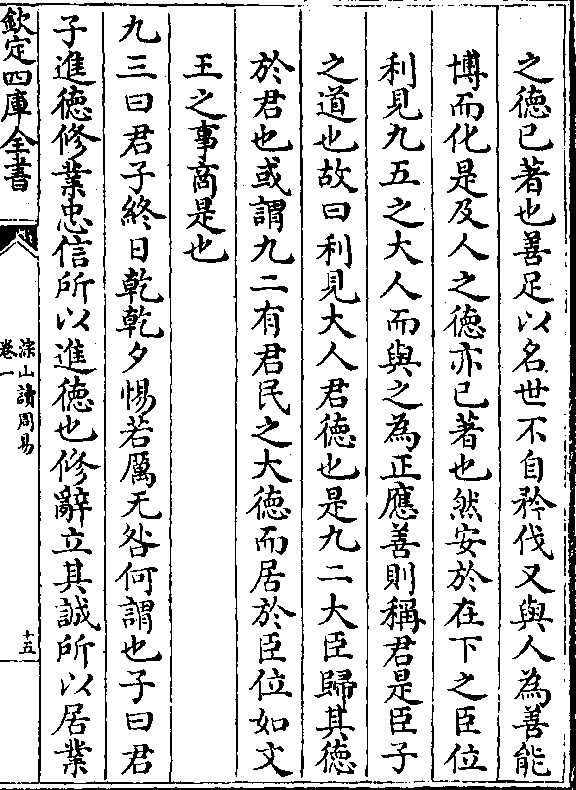 之德已著也善足以名世不自矜伐又與人為善能
博而化是及人之德亦已著也然安於在下之臣位
利見九五之大人而與之為正應善則稱君是臣子
之道也故曰利見大人君德也是九二大臣歸其德
於君也或謂九二有君民之大德而居於臣位如文
王之事商是也
九三曰君子終日乾乾夕惕若厲无咎何謂也子曰君
子進德修業忠信所以進德也修辭立其誠所以居業
欽定四庫全書
淙山讀周易
卷一
十五